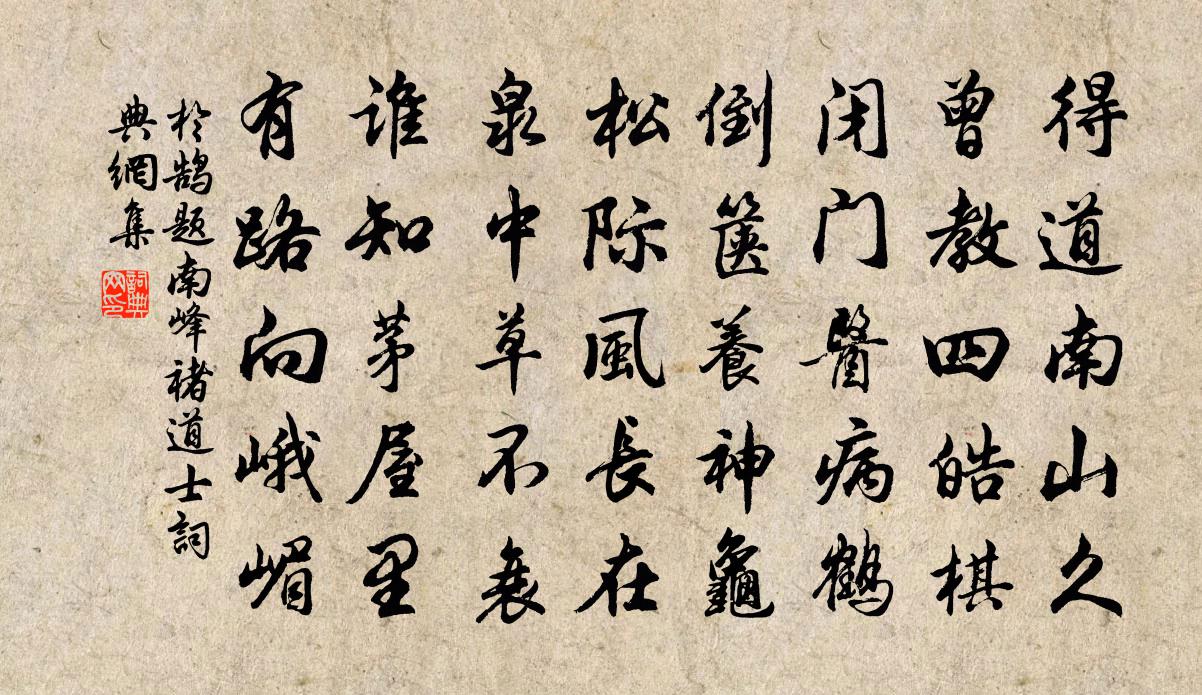 得道南山久
曾教四皓棋
闭门医病鹤
倒箧养神龜
松际風長在
泉中草不衰
谁知茅屋里
有路向峨嵋
於鵠题南峰褚道士詞
典網集
詞典
网印